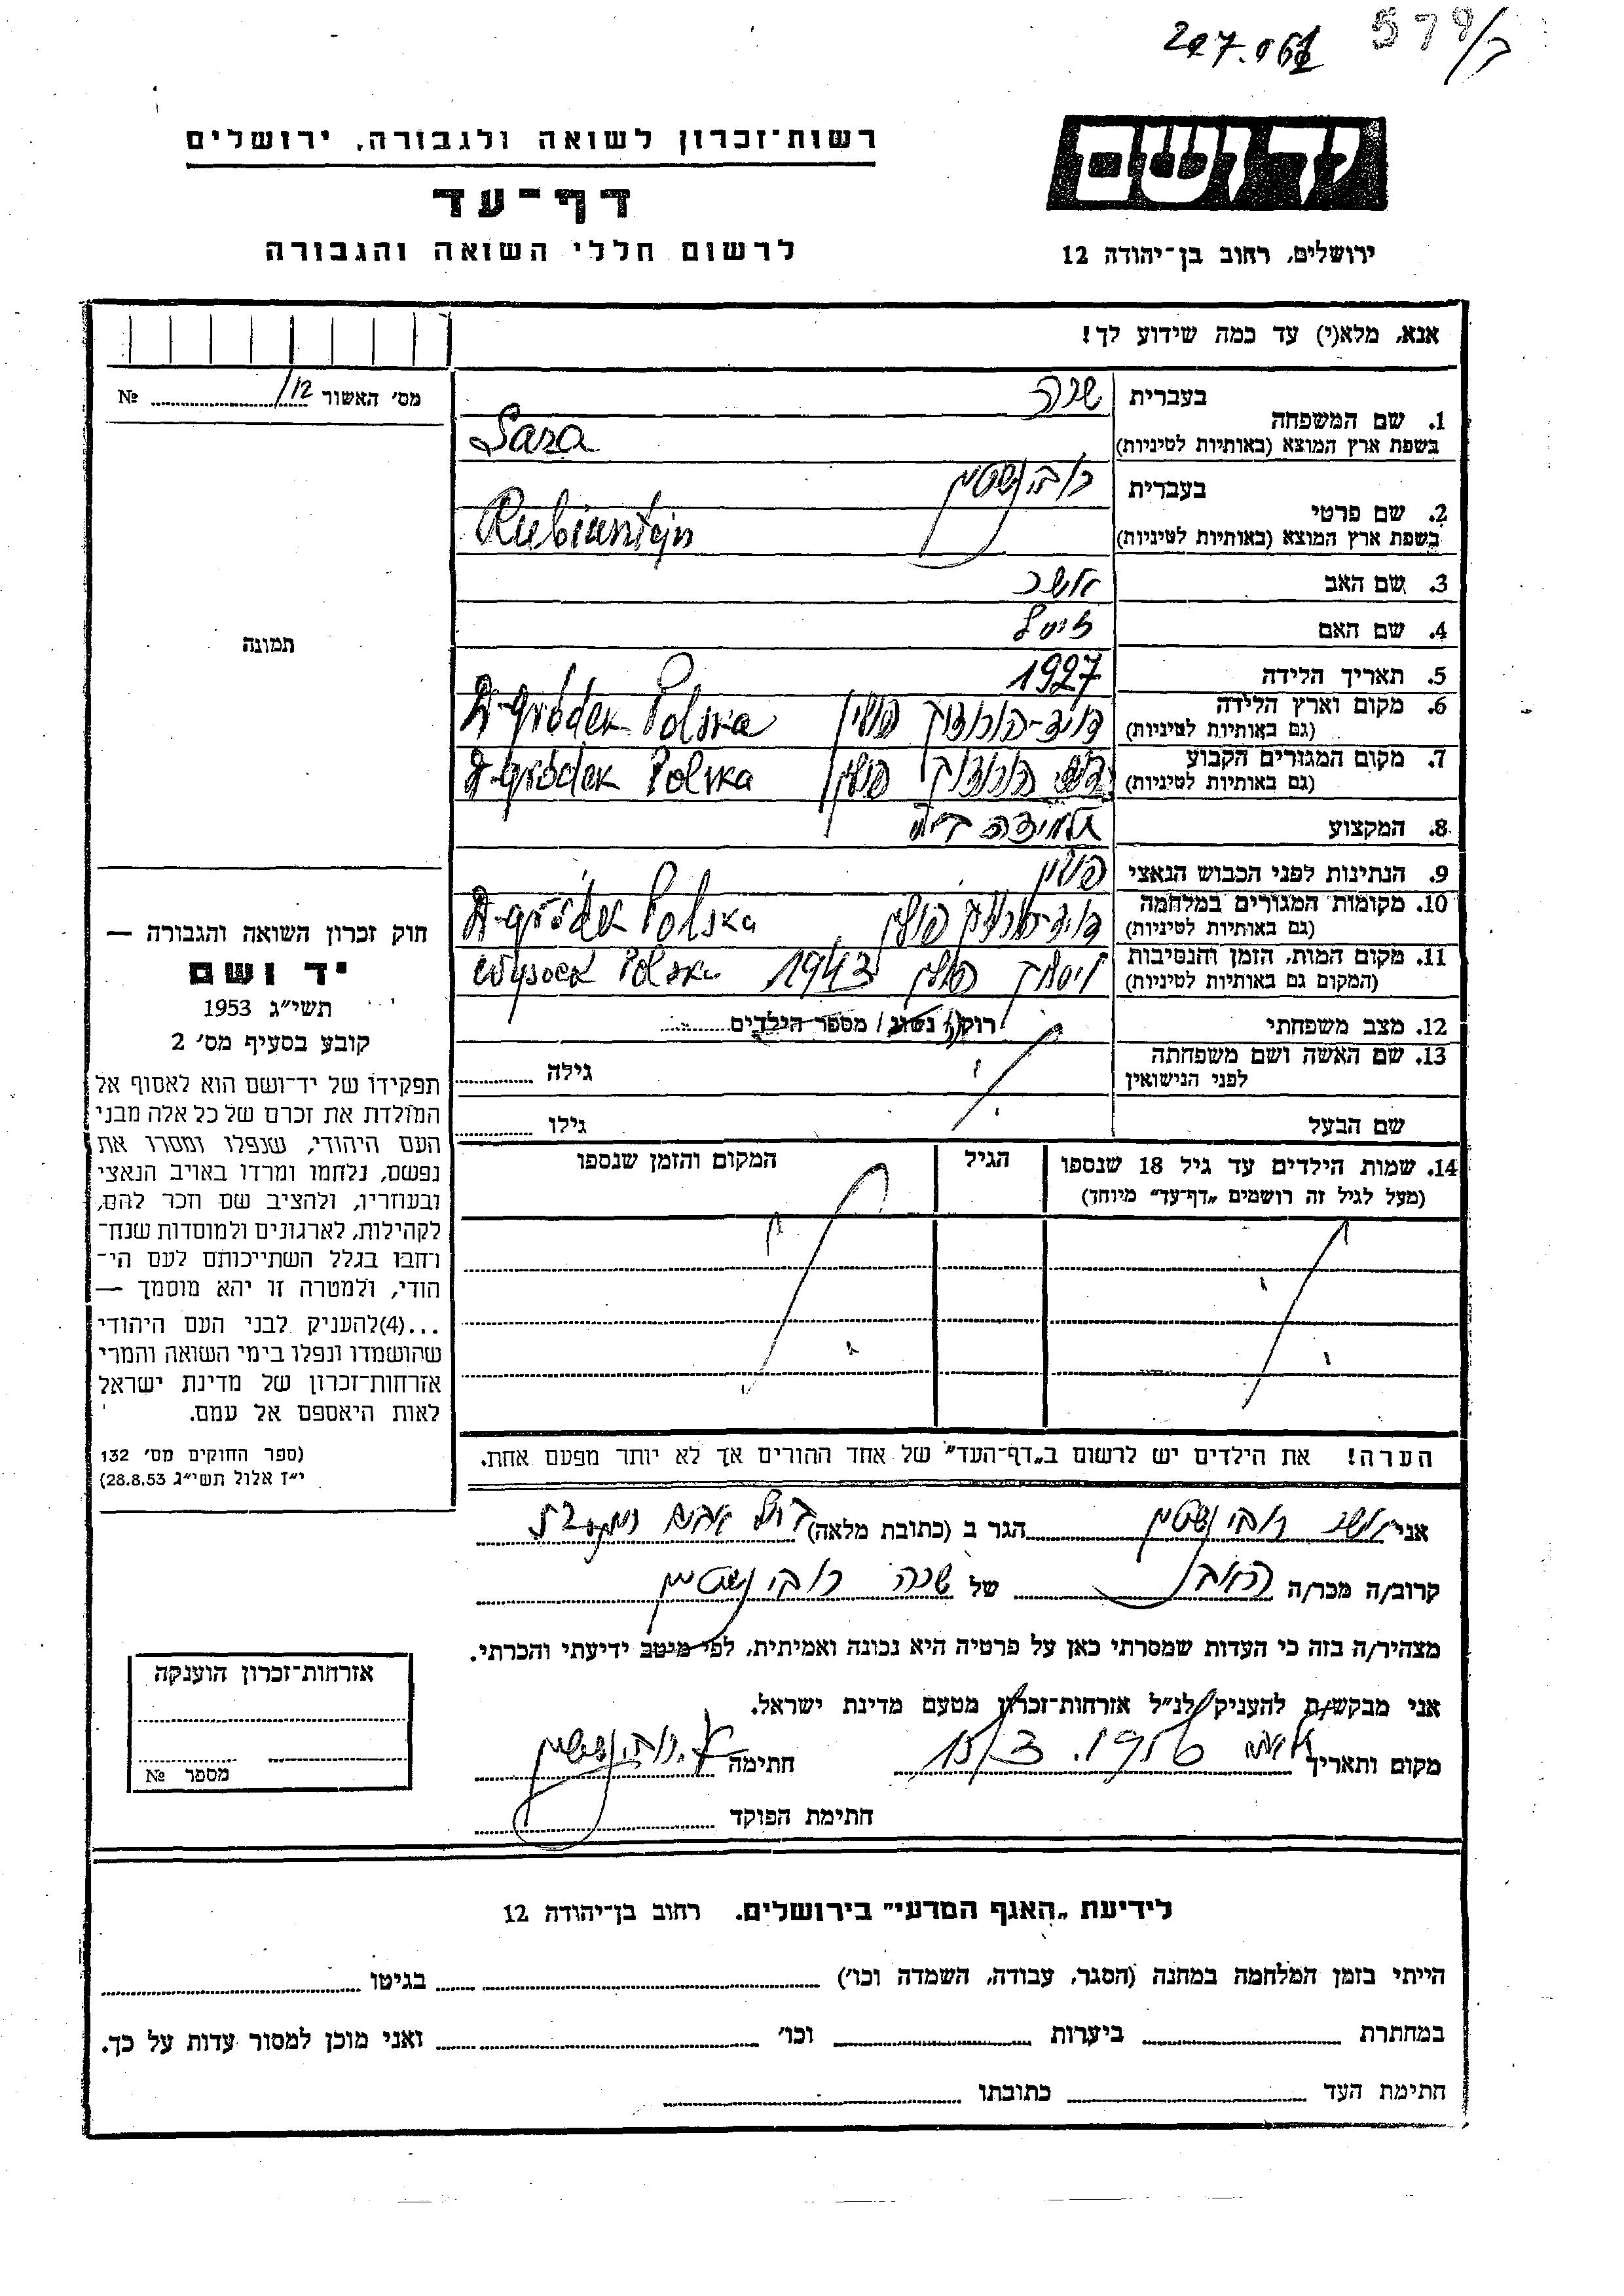 207.061 579/ר
רשות־זכרון לשואה ולגבורה, ירושלים
יד ושם
דף־עד
לרשום חללי השואה והגבורה
ירושלים, רחוב בן־יהודה 12
אנא, מלא(י) עד כמה שידוע לך!
מס׳ האשור 12/ №
1. שם המשפחה
בעברית שרה
בשפת ארץ המוצא (באותיות לטיניות) Sara
2. שם פרטי
בעברית רובינשטין
בשפת ארץ המוצא (באותיות לטיניות) Rubinntejn
3. שם האב אשר
4. שם האם
5. תאריך הלידה 1927
6. מקום וארץ הלידה דויד-הורודוק פולין D-gródek Polska
(גם באותיות לטיניות)
7. מקום המגורים הקבוע הורודוק פולין D-gródek Polska
(גם באותיות לטיניות)
8. המקצוע תלמידה
9. הנתינות לפני הכבוש הנאצי פולין
10. מקומות המגורים במלחמה פולין D-gródek Polska
(גם באותיות לטיניות)
11. מקום המות, הזמן והנסיבות ויסוצק פולין 1943 Wysock Polska
(המקום גם באותיות לטיניות)
12. מצב משפחתי רוק/ נשוי/ מספר הילדים
13. שם האשה ושם משפחתה גילה
לפני הנישואין
שם הבעל גילו
14. שמות הילדים עד גיל 18 שנספו הגיל המקום והזמן שנספו
(מעל לגיל זה רושמים „דף־עד״ מיוחד)
הערה! את הילדים יש לרשום ב„דף־העד״ של אחד ההורים אך לא יותר מפעם אחת.
תמונה
חוק זכרון השואה והגבורה —
יד ושם
תשי״ג 1953
קובע בסעיף מס׳ 2
תפקידו של יד־ושם הוא לאסוף אל
המולדת את זכרם של כל אלה מבני
העם היהודי, שנפלו ומסרו את
נפשם, נלחמו ומרדו באויב הנאצי
ובעוזריו, ולהציב שם וזכר להם,
לקהילות, לארגונים ולמוסדות שנח־
רחבו בגלל השתייכותם לעם הי־
הודי, ולמטרה זו יהא מוסמך —
...(4)להעניק לבני העם היהודי
שהושמדו ונפלו בימי השואה והמרי
אזרחות־זכרון של מדינת ישראל
לאות היאספם אל עמם.
(ספר החוקים מס׳ 132
י״ז אלול תשי״ג 28.8.53)
אני אשר רובינשטין הגר ב (כתובת מלאה)
קרוב/ה מכר/ה האב של שרה רובינשטין
מצהיר/ה בזה כי העדות שמסרתי כאן על פרטיה היא נכונה ואמיתית, לפי מיטב ידיעתי והכרתי.
אני מבקש/ת להעניק לנ״ל אזרחות־זכרון מטעם מדינת ישראל.
מקום ותאריך 15/3. 1956 חתימה א. רובינשטין
חתימת הפוקד
אזרחות־זכרון הוענקה
מספר №
לידיעת „האגף המדעי״ בירושלים. רחוב בן־יהודה 12
הייתי בזמן המלחמה במחנה (הסגר, עבודה, השמדה וכו׳) בגיטו
במחתרת ביערות וכו׳ ואני מוכן למסור עדות על כך.
חתימת העד כתובתו